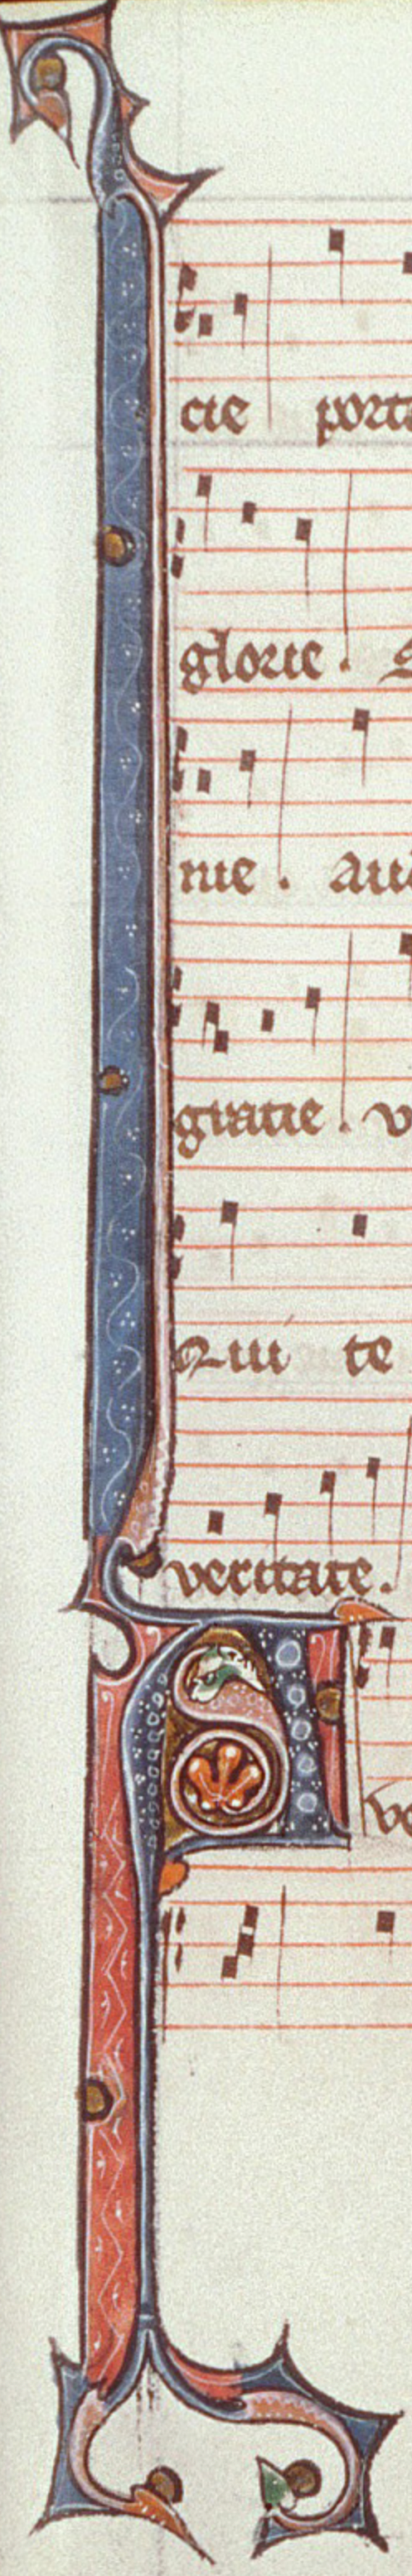 cie porta
glorie . S
nie . aui
gratie . v
Qui te
veritate .
Ave